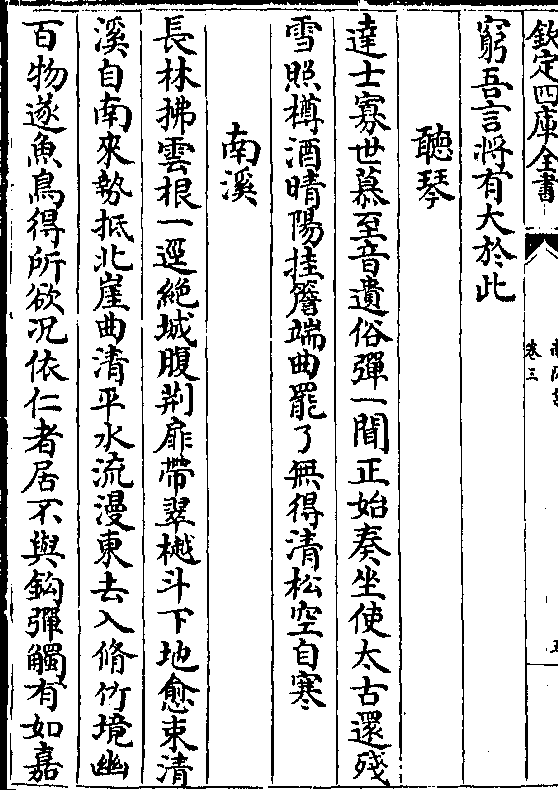 欽定四庫全書
卷三
窮吾言將有大於此
聽琴
達士寡世慕至音遺俗彈一聞正始奏坐使太古還殘
雪照樽酒晴陽挂簷端曲罷了無得清松空自寒
南溪
長林拂雲根一逕絶城腹荆扉帶翠樾斗下地愈束清
溪自南來勢抵北崖曲清平水流漫東去入脩竹境幽
百物遂魚鳥得所欲况依仁者居不與鈎彈觸有如嘉